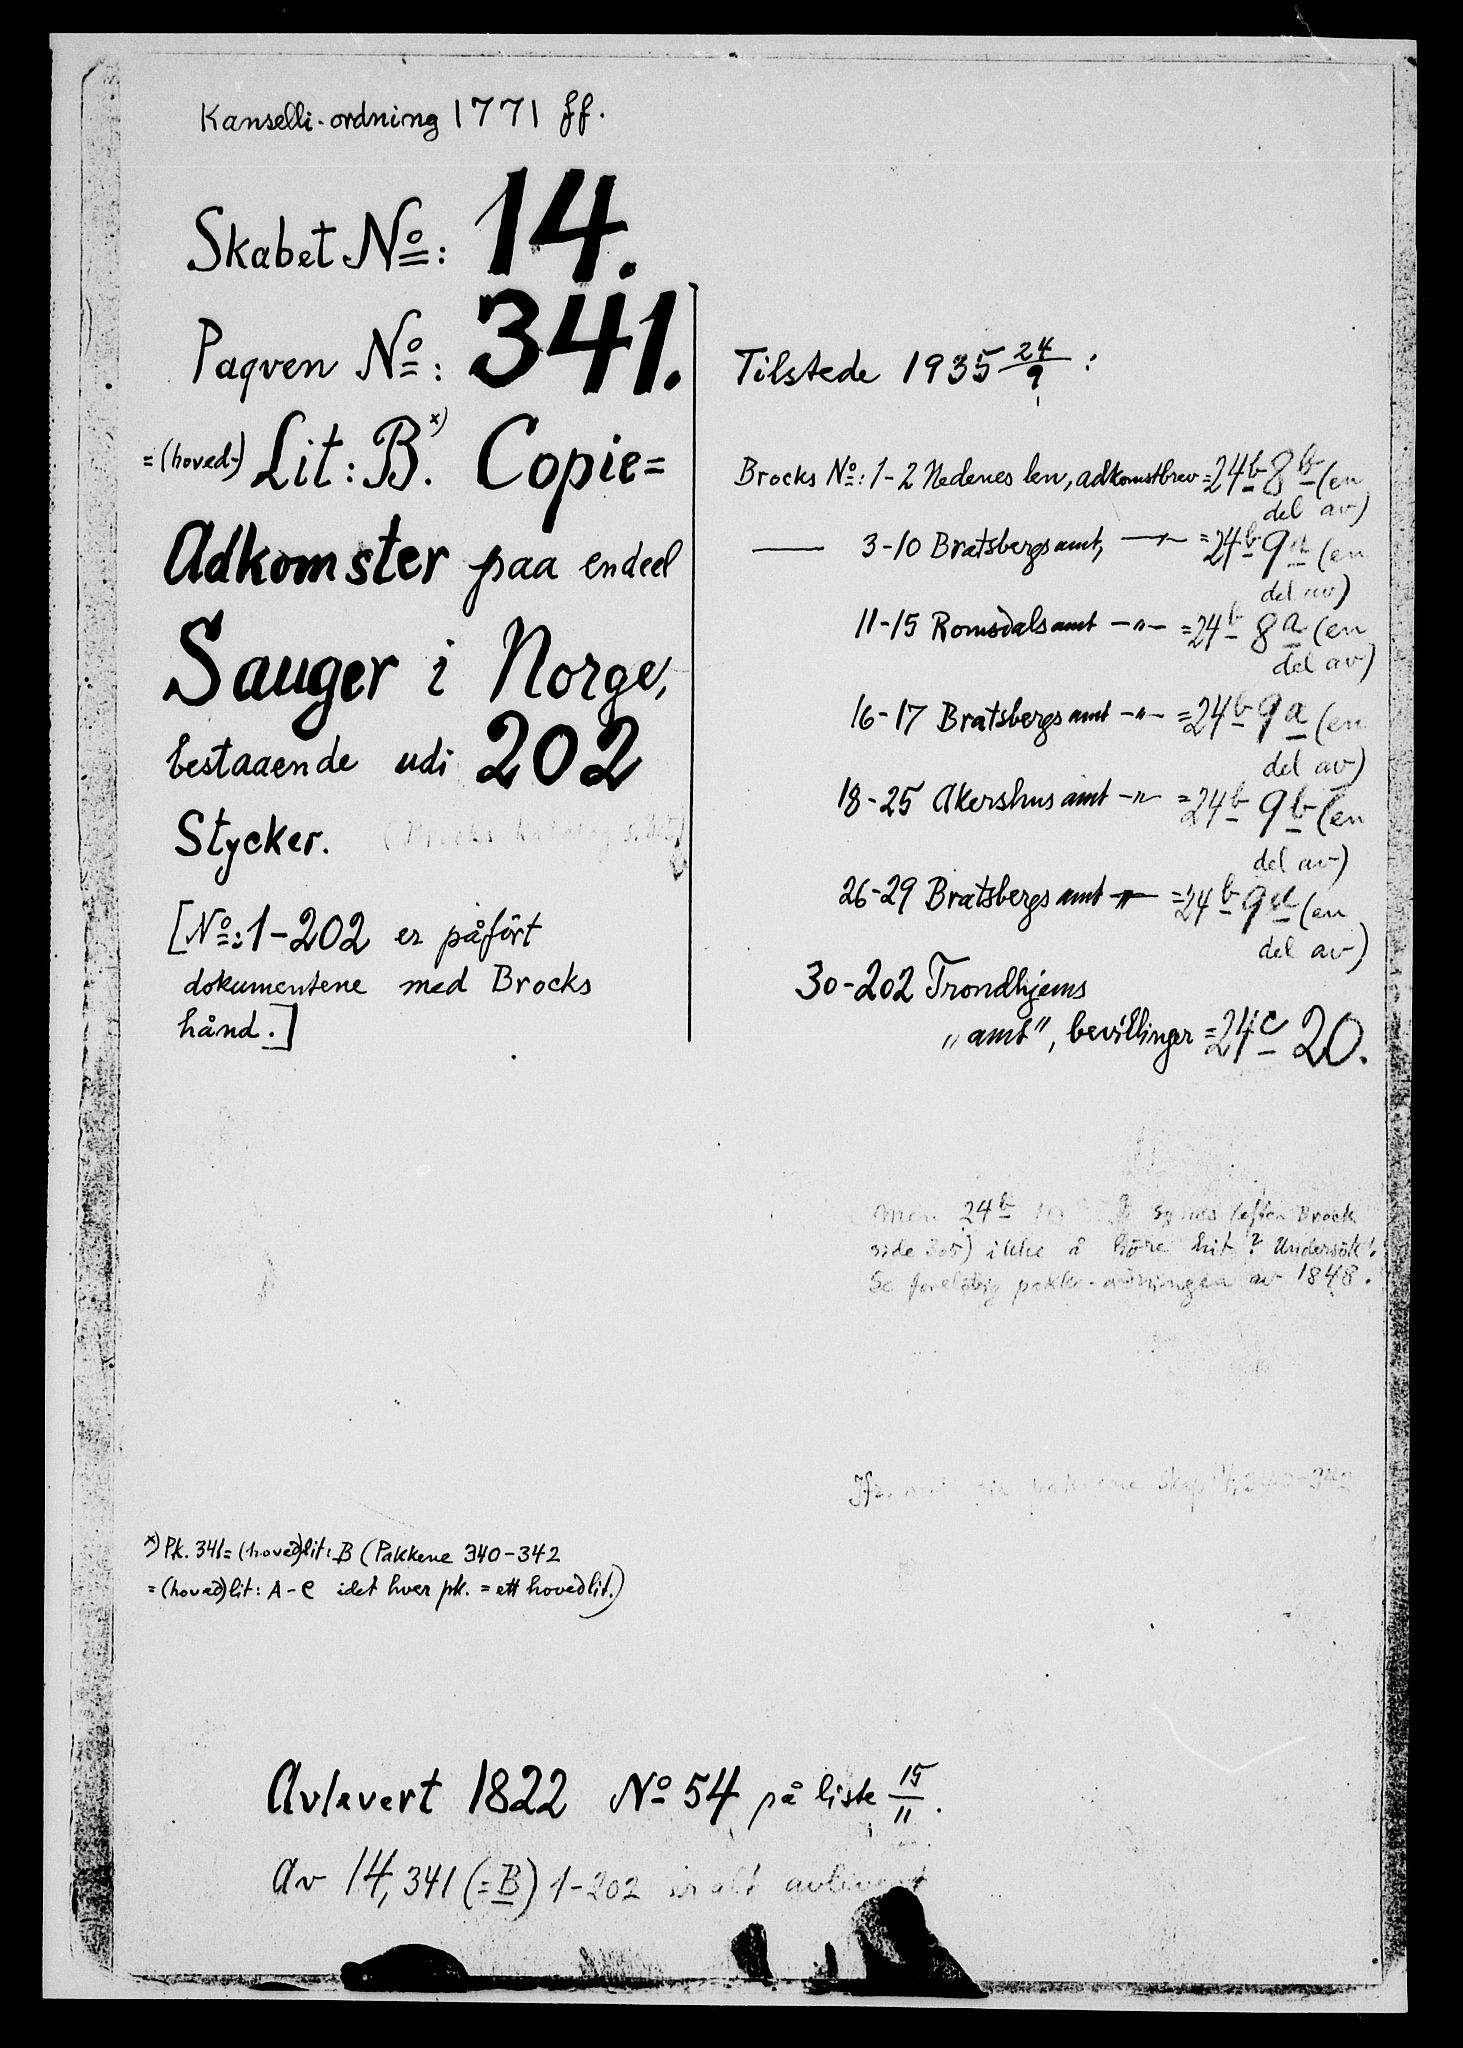 Kanselli-ordning 1771 ff.
Skabet No: 14.
Paqven No: 341.
=(hoved-) Lit: B.x) Copie=
Adkomster paa endeel
Sauger i Norge,
bestaaende udi 202
Stycker.
[No: 1-202 er påført
dokumentene med Brocks
hånd.]
Tilstede 1935 24/9:
Brocks No: 1-2 Nedenes len, adkomstbrev = 24b 8b (en
del av)
— 3-10 Bratsbergs amt, —"— = 24b 9a (en
del av)
11-15 Romsdals amt —"— = 24b 8a (en
del av)
16-17 Bratsbergs amt —"— = 24b 9a (en
del av)
18-25 Akershus amt —"— = 24b 9b (en
del av)
26-29 Bratsbergs amt —"— = 24b 9a (en
del av)
30-202 Trondhjems
"amt", bevillinger = 24c 20.
Men 24b synes (efter Brock
side 305) ikke å høre hit? Undersøk!
Se foreløbig pakke-ordningen av 1848.
pakkene Skap 14, 340-342
x) Pk. 341 = (hoved)lit: B (Pakkene 340-342
= (hoved)lit: A-C idet hver pk. = ett hovedlit.)
Avlevert 1822 No 54 på liste 15/11.
Av 14, 341 (=B) 1-202 er alt avlevert